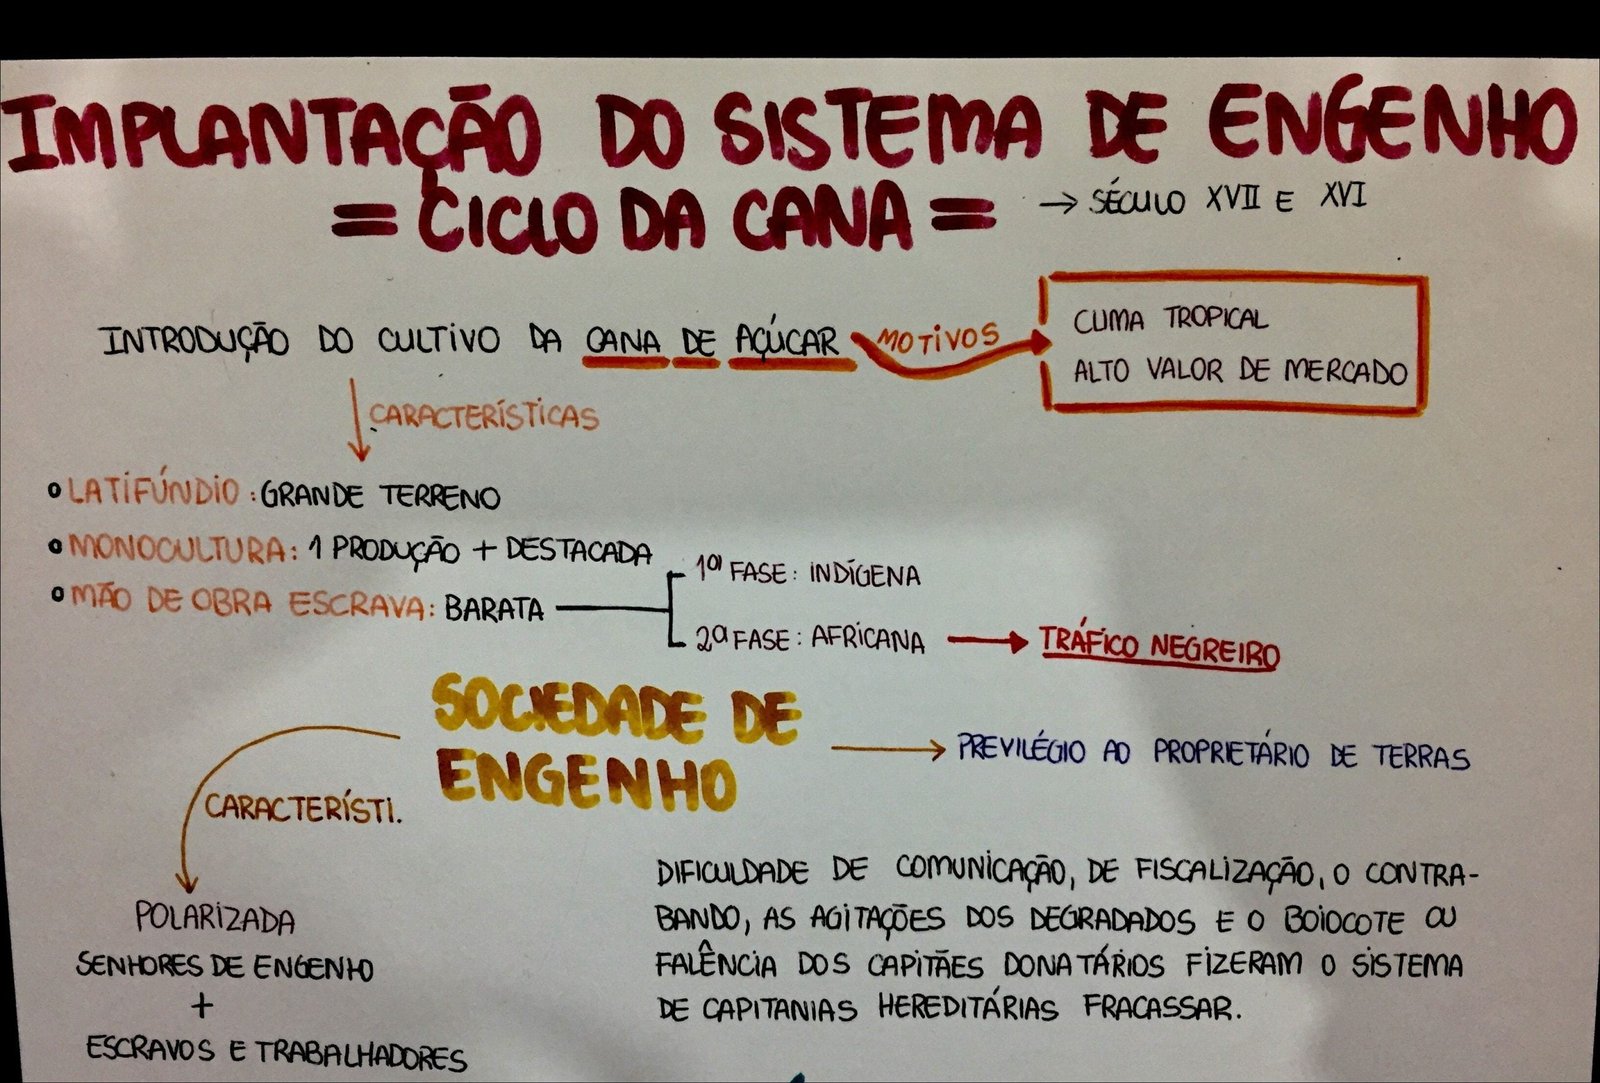 IMPLANTAÇÃO DO SISTEMA DE ENGENHO
= CICLO DA CANA = → SÉCULO XVII E XVI
INTRODUÇÃO DO CULTIVO DA CANA DE AÇÚCAR MOTIVOS
CLIMA TROPICAL
ALTO VALOR DE MERCADO
CARACTERÍSTICAS
LATIFÚNDIO: GRANDE TERRENO
MONOCULTURA: 1 PRODUÇÃO + DESTACADA
MÃO DE OBRA ESCRAVA: BARATA
1ª FASE: INDÍGENA
2ª FASE: AFRICANA → TRÁFICO NEGREIRO
SOCIEDADE DE
ENGENHO
→ PREVILÉGIO AO PROPRIETÁRIO DE TERRAS
CARACTERÍSTI.
POLARIZADA
SENHORES DE ENGENHO
+
ESCRAVOS E TRABALHADORES
DIFICULDADE DE COMUNICAÇÃO, DE FISCALIZAÇÃO, O CONTRA-
BANDO, AS AGITAÇÕES DOS DEGRADADOS E O BOIOCOTE OU
FALÊNCIA DOS CAPITÃES DONATÁRIOS FIZERAM O SISTEMA
DE CAPITANIAS HEREDITÁRIAS FRACASSAR.